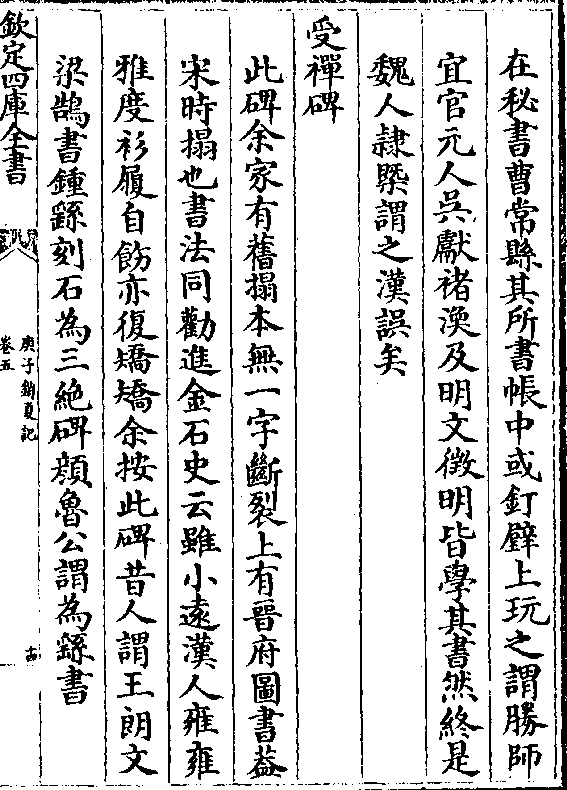 在秘書曹常縣其所書帳中或釘壁上玩之謂勝師
宜官元人吳獻禇渙及明文徵明皆學其書然終是
魏人隷槩謂之漢誤矣
受禪碑
此碑余家有舊搨本無一字斷裂上有晉府圖書葢
宋時搨也書法同勸進金石史云雖小遠漢人雍雍
雅度衫履自飭亦復矯矯余按此碑昔人謂王朗文
梁鵠書鍾繇刻石為三絶碑顔魯公謂為繇書
欽定四庫全書
庚子銷夏記
卷五